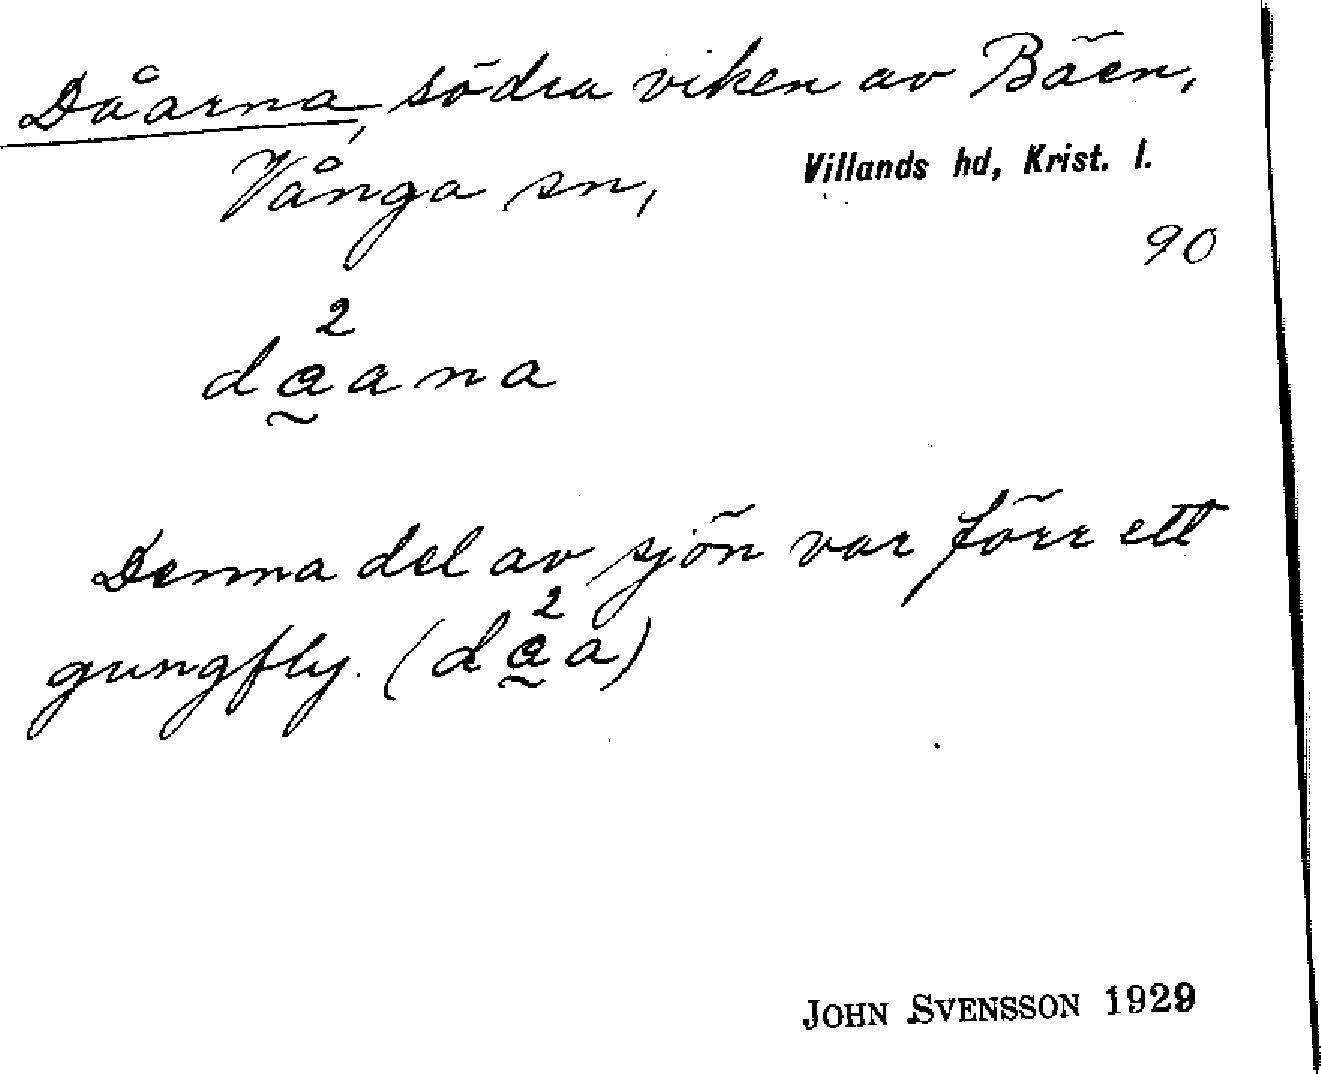 Dåarna, södra viken av Bäen,
Vånga sn, Villands hd, Krist. l.
90
2
da̰ana
Denna del av sjön var förr ett
2
gungfly. (da̰a)
JOHN SVENSSON 1929